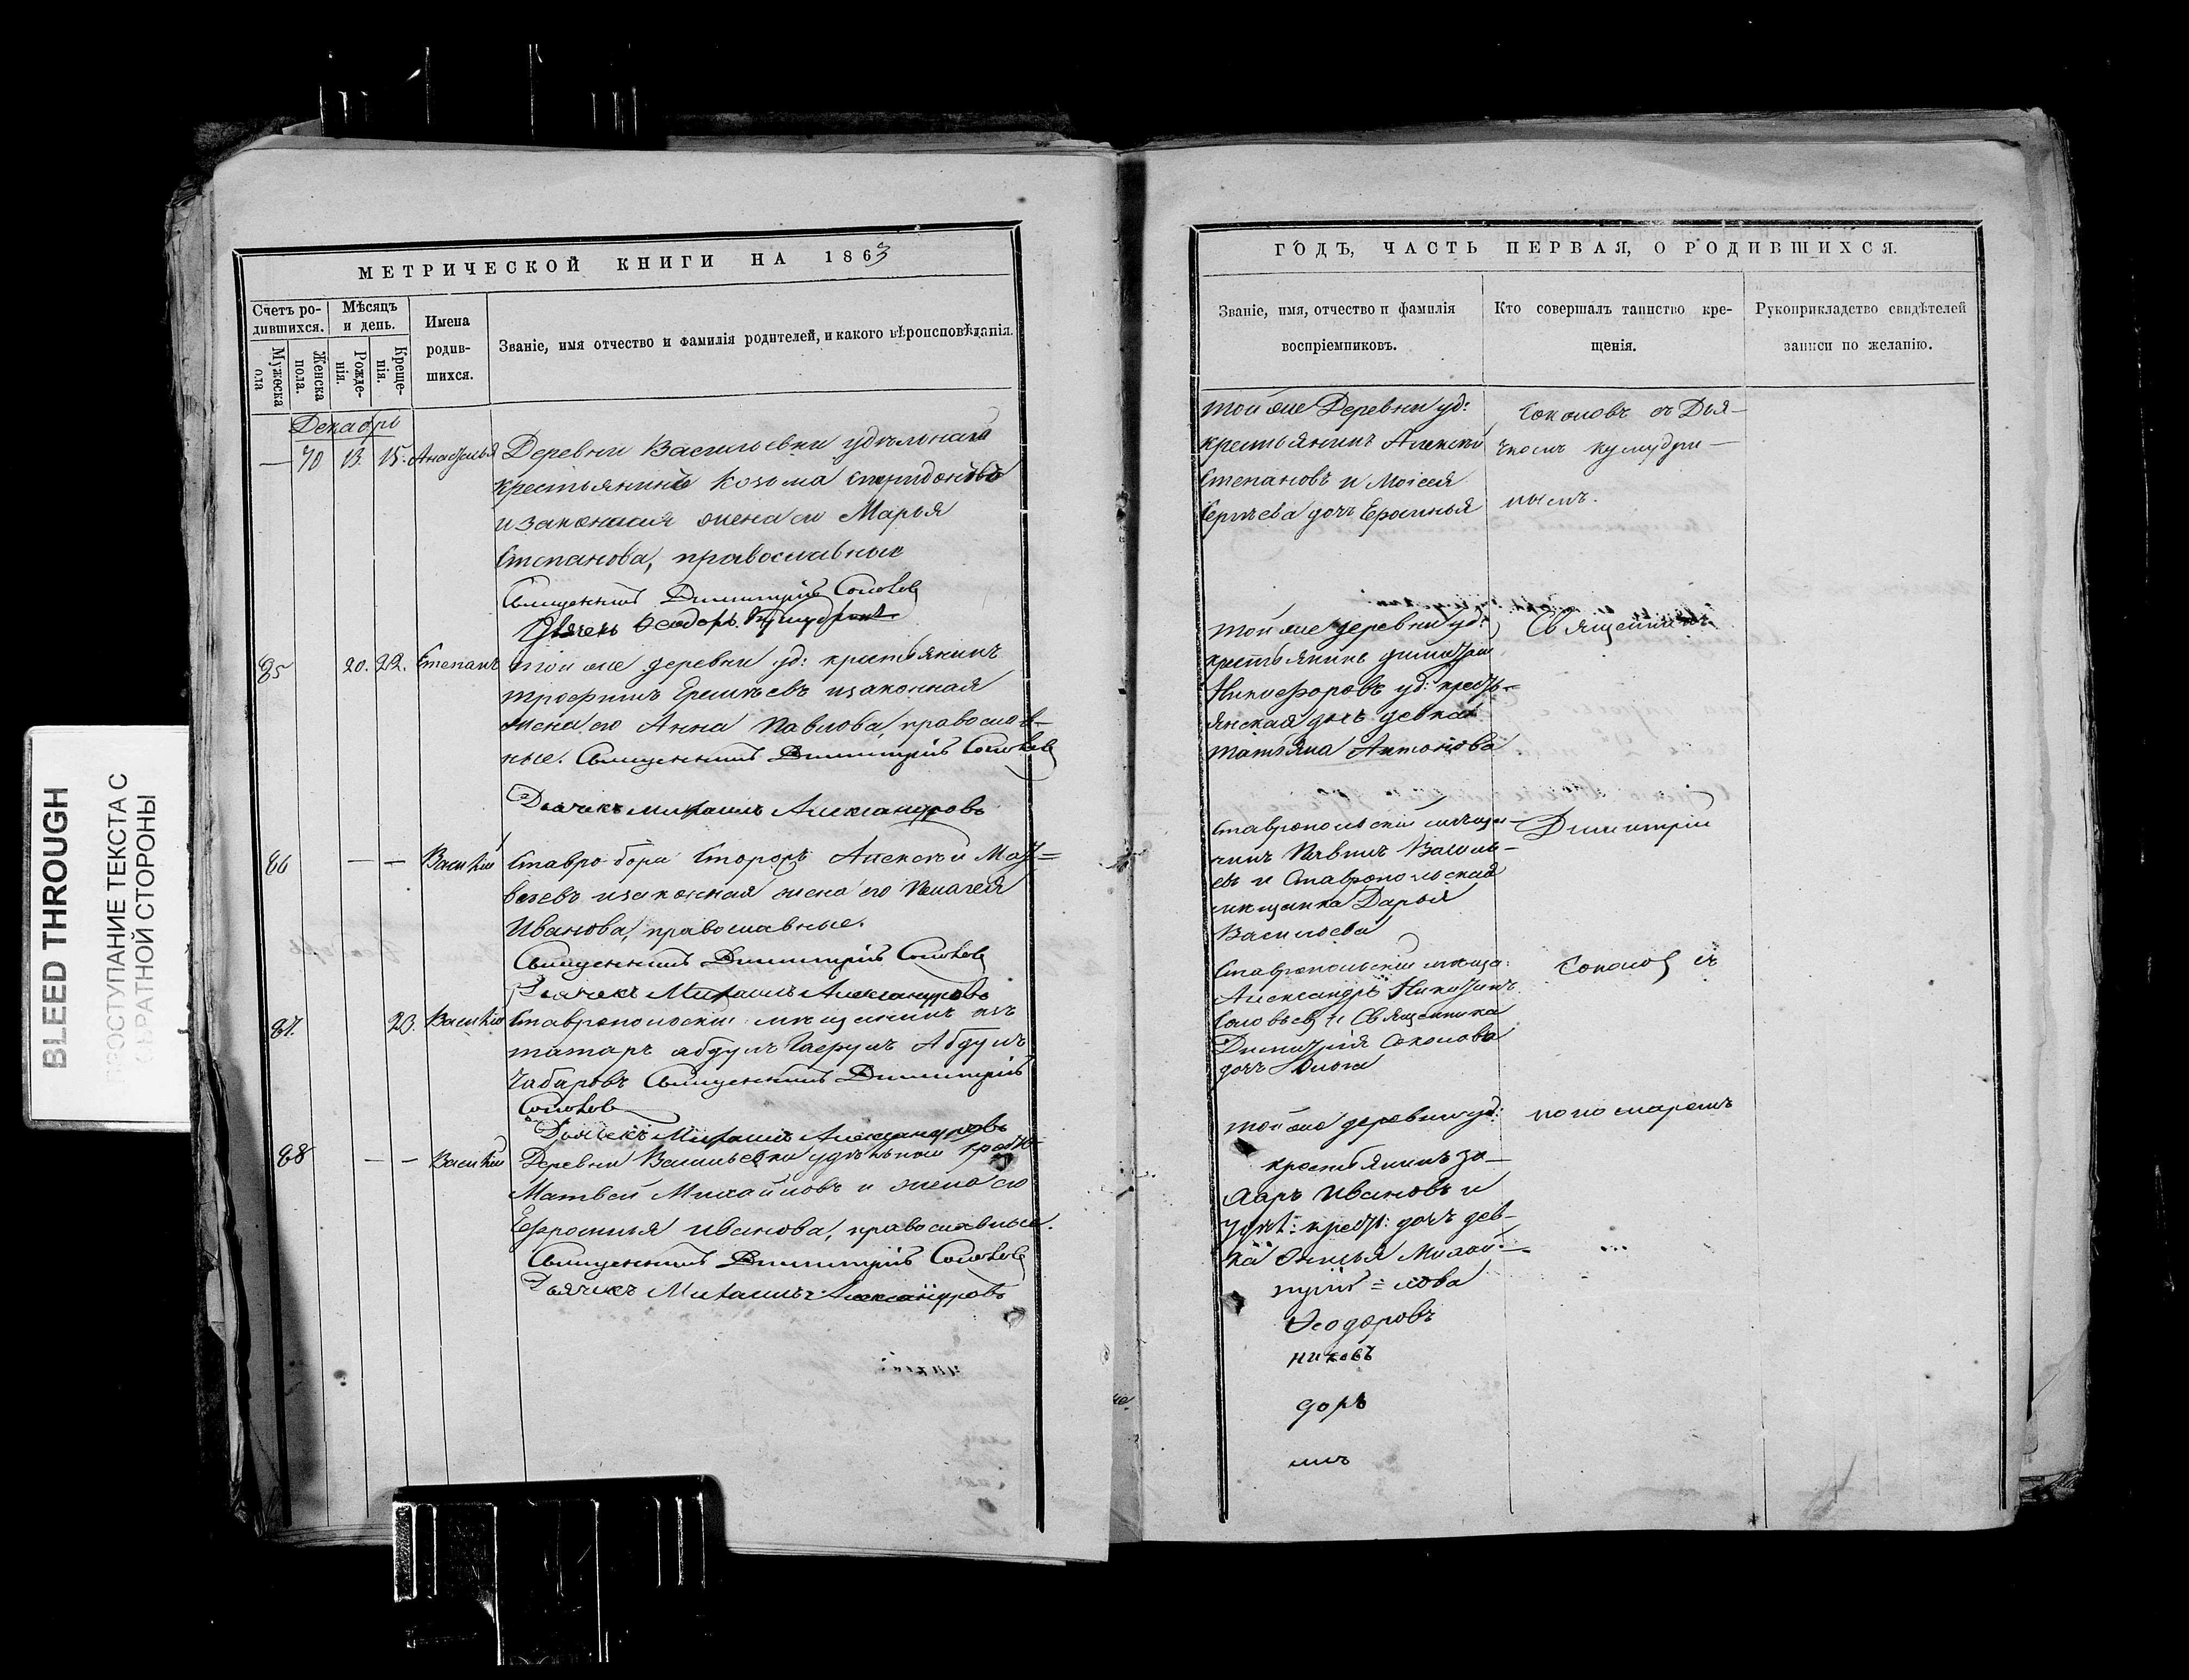 BLEED THROUGH
ПРОСТУПАНИЕ ТЕКСТА С
ОБРАТНОЙ СТОРОНЫ
МЕТРИЧЕСКОЙ КНИГИ НА 1863
Счетъ ро-
дившихся.
Мѣсяцъ
и день.
Имена
родив-
шихся.
Званіе, имя отчество и фамилія родителей, и какого вѣроисповѣданія.
Мужеска
ола
Женска
пола.
Рожде-
нія.
Креще-
нія.
Декабрь
— 70 13. 15. Анастасья Деревни Васильевки удѣльнаго
крестьянина Козьма Спиридоновъ
и законная жена его Марья
Степанова, православные
Священникъ Димитрій Соколов
Дьячекъ Ѳеодоръ
85 20. 22. Степанъ той же деревни уд: крестьянинъ
Трофимъ Еремѣевъ и законная
жена его Анна Павлова, православ-
ные. Священникъ Димитрій Соколов
Дьячекъ Михаилъ Александровъ
86 — — Василій Ставро Сторожъ Алексѣй Мат=
вѣевъ и законная жена его Пелагея
Иванова, православные.
Священникъ Димитрій Соколов
Дьячекъ Михаилъ Александровъ
87. 20. Василій Ставропольскій мѣщанинъ изъ
татаръ Абдулъ Абдулъ
Священникъ Димитрій
Соколов
Дьячекъ Михаилъ Александровъ
88 — — Василій Деревни Васильевки удѣльной
Матвей Михайловъ и жена его
Ефросинья Иванова, православные.
Священникъ Димитрій Соколов
Дьячекъ Михаилъ Александровъ
ГОДЪ, ЧАСТЬ ПЕРВАЯ, О РОДИВШИХСЯ.
Званіе, имя, отчество и фамилія
воспріемниковъ.
Кто совершалъ таинство кре-
щенія.
Рукоприкладство свидѣтелей
записи по желанію.
той же Деревни уд:
крестьянинъ Алексѣй
Степановъ и Моисея
Сергѣева дочь
Соколовъ съ Дья-
чкомъ Кумудри-
нымъ.
той же деревни уд:
крестьянинъ Димитрій
Никифоровъ уд: кресть-
янская дочь девка
Татьяна Антонова
Священникъ
Ставропольскій мѣща-
нинъ Павелъ Василь-
евъ и Ставропольская
мѣщанка Дарья
Васильева
Димитрій
Ставропольскій мѣща:
Александръ Никитинъ
Соловьев и Священника
Димитрія Соколова
дочь Юлія
Соколов съ
той же деревни уд:
крестьянинъ За-
харъ Ивановъ и
удѣл: крест: дочь дев-
ка Михай-
лова
Ѳеодоровъ
никовъ
доръ
имъ
пономаремъ